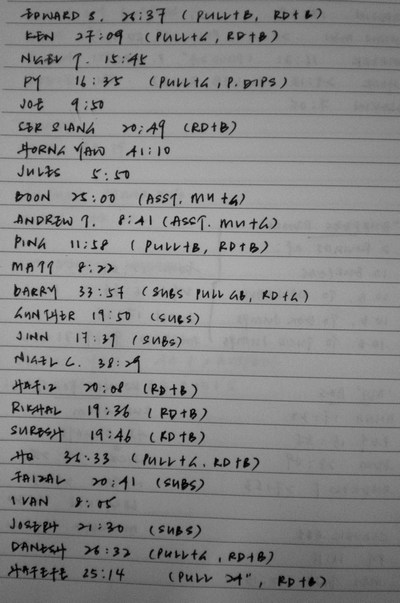 EDWARD S. 26:37 (PULL+B, RD+B)
KEN 27:09 (PULL+G, RD+B)
NIGEL T. 15:45
PY 16:35 (PULL+G, P.DIPS)
JOE 9:50
SER SIANG 20:49 (RD+B)
HORNG YAW 41:10
JULES 5:50
BOON 25:00 (ASST. MU+G)
ANDREW T. 8:41 (ASST. MU+G)
PING 11:58 (PULL+B, RD+B)
MATT 8:22
BARRY 33:57 (SUBS PULL GB, RD+G)
GUNTHER 19:50 (SUBS)
JINN 17:39 (SUBS)
NIGEL C. 38:29
HAFIZ 20:08 (RD+B)
RIKHAL 19:36 (RD+B)
SURESH 19:46 (RD+B)
HO 36:33 (PULL+G, RD+B)
FAIZAL 20:41 (SUBS)
IVAN 8:05
JOSEPH 21:30 (SUBS)
DANESH 26:32 (PULL+G, RD+B)
25:14 (PULL 24", RD+B)